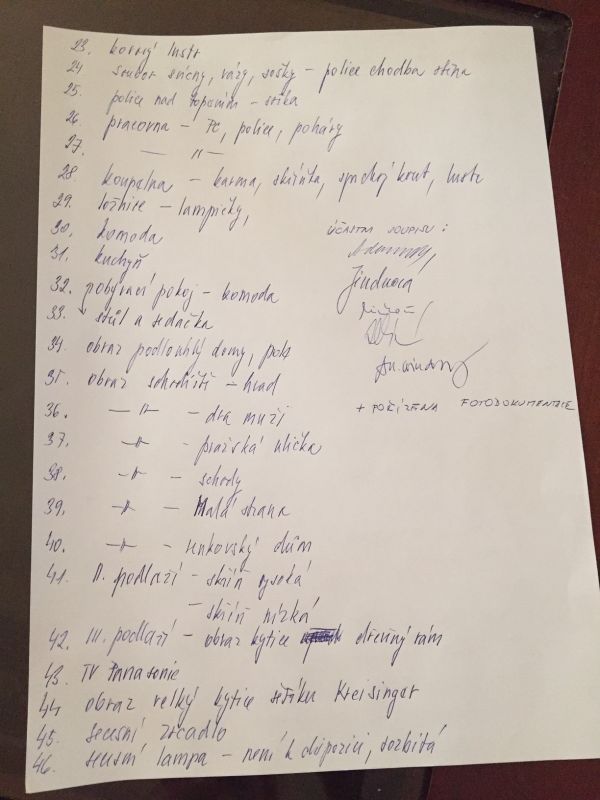 23. kovový lustr
24. soubor svícny, vázy, sošky – police chodba stěna
25. police nad topením – stěna
26. pracovna – PC, police, poháry
27. — " —
28. koupelna – karma, skříňka, sprchový kout, lustr
29. ložnice – lampičky,
30. komoda
31. kuchyň
32. pobývací pokoj – komoda
33. stůl a sedačka
34. obraz podlouhlý domy,
35. obraz schodiště – hrad
36. — " — – dva muži
37. — " — – pražská ulička
38. — " — – schody
39. — " — – Malá strana
40. — " — – venkovský dům
41. II. podlaží – skříň vysoká
– skříň nízká
42. III. podlaží – obraz kytice dřevěný rám
43. TV Panasonic
44. obraz velký kytice Kreisinger
45. secesní zrcadlo
46. secesní lampa – není k dispozici, rozbitá
ÚČASTNI SOUPISU:
+ POŘÍZENA FOTODOKUMENTACE